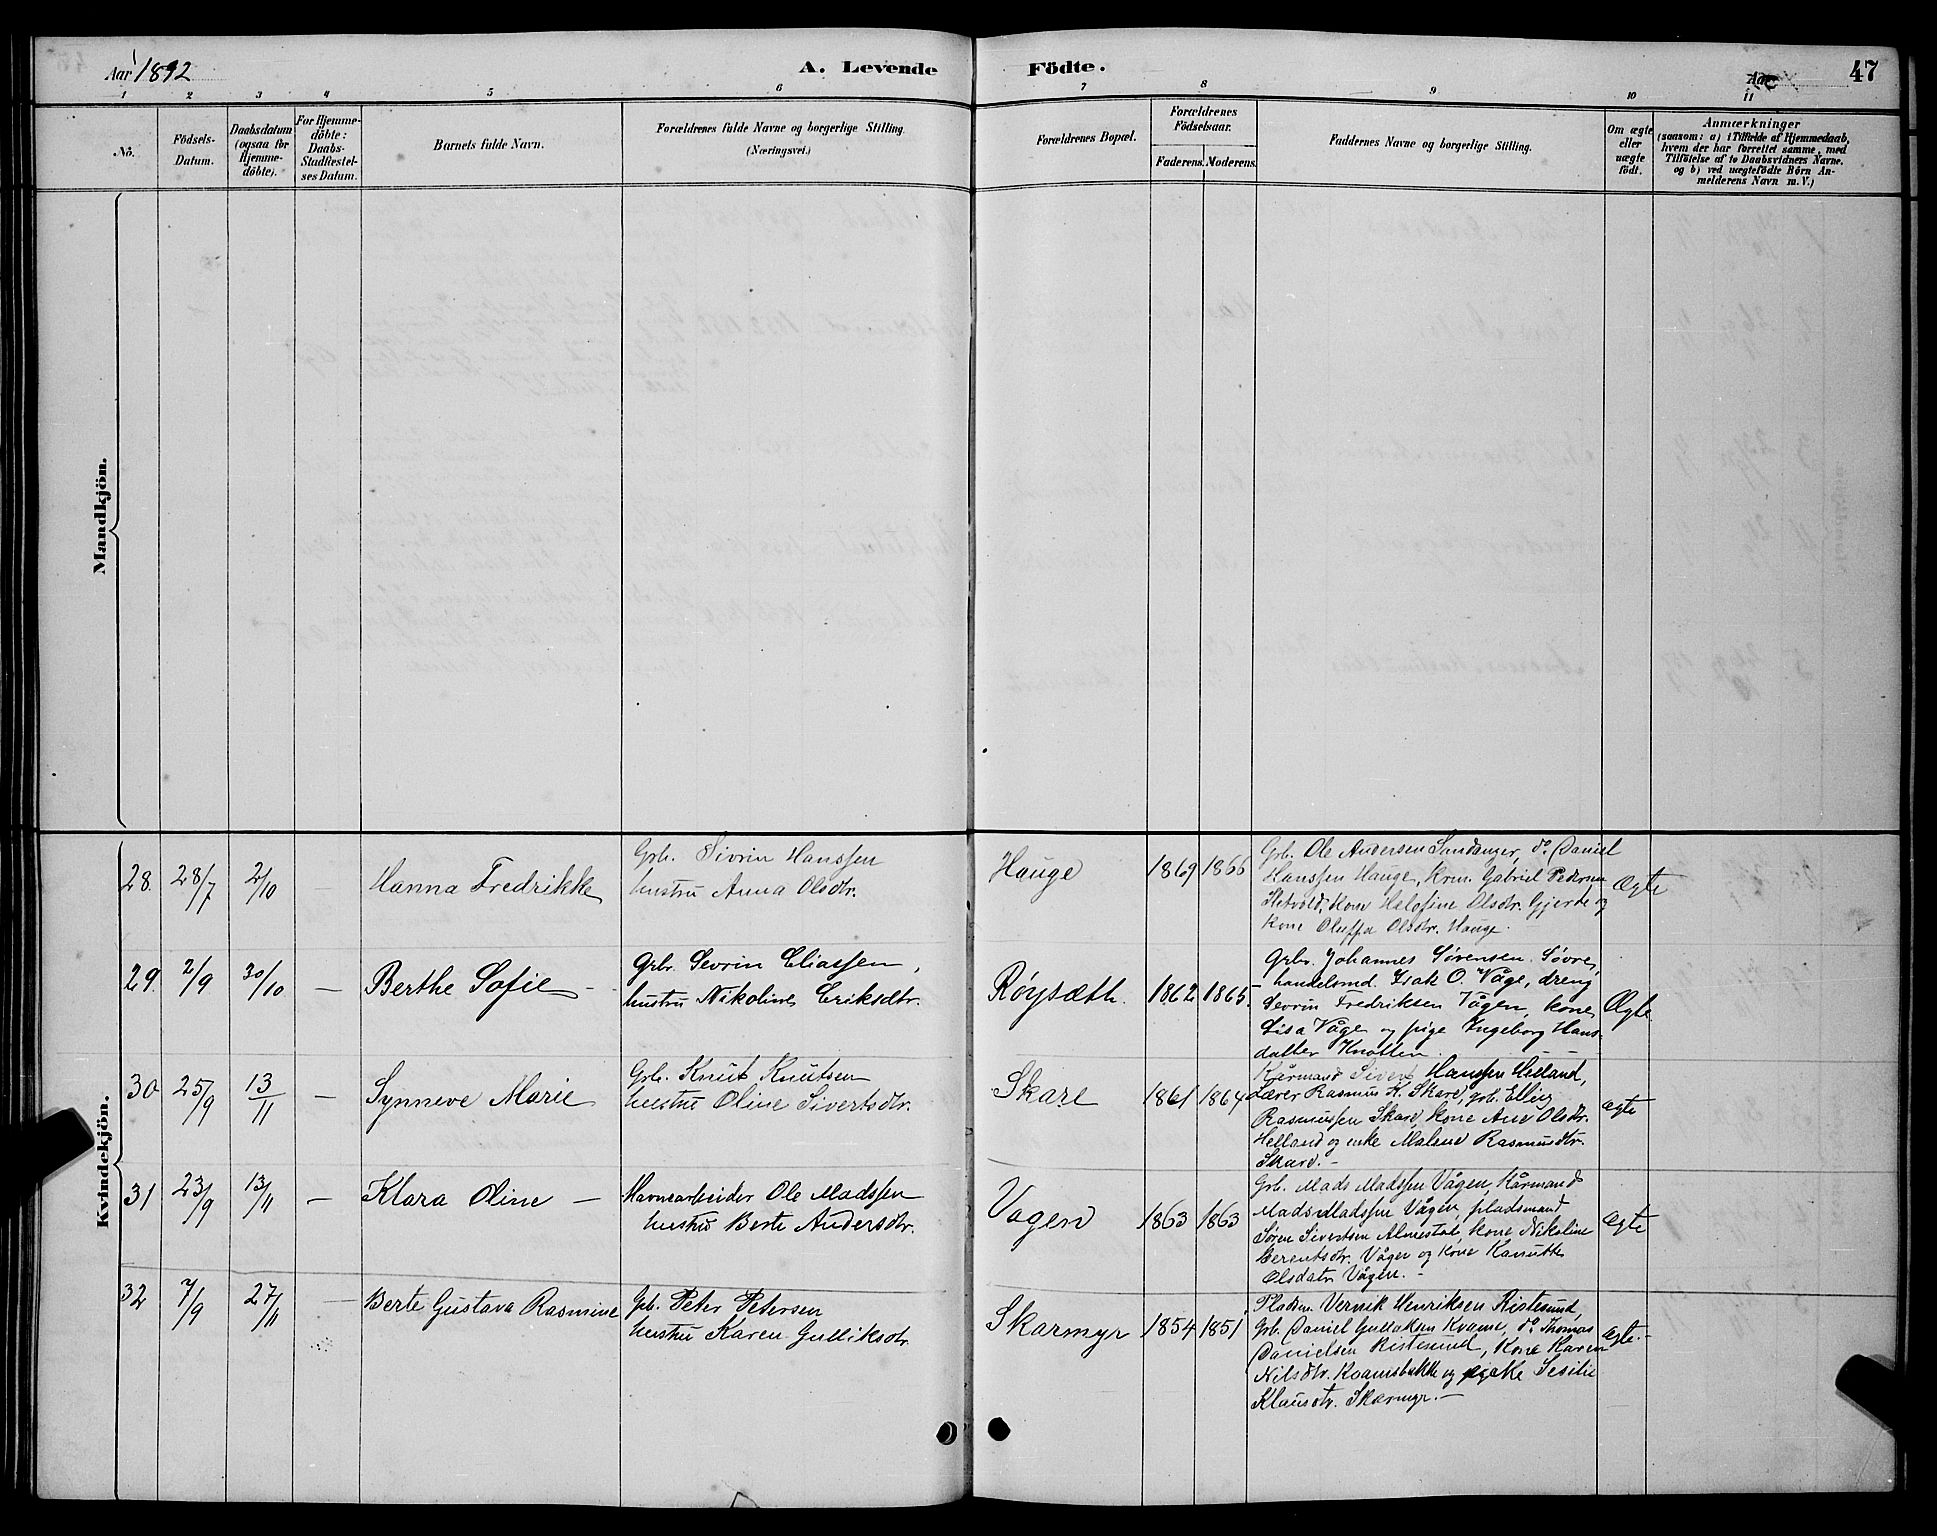 Aar 1892
A. Levende Födte.
Aar
47
1 2 3 4 5 6 7 8 9 10 11
No.
Födsels-
Datum.
Daabsdatum
(ogsaa for
Hjemme-
döbte).
For Hjemme-
döbte:
Daabs-
Stadfæstel-
ses Datum.
Barnets fulde Navn.
Forældrenes fulde Navne og borgerlige Stilling.
(Næringsvei.)
Forældrenes Bopæl.
Forældrenes
Födselsaar.
Faderens. Moderens.
Faddernes Navne og borgerlige Stilling.
Om ægte
eller
uægte
födt.
Anmærkninger
(saasom: a) i Tilfælde af Hjemmedaab,
hvem der har forrettet samme, med
Tilföielse af to Daabsvidners Navne,
og b) ved uægtefödte Börn An-
melderens Navn m. V.)
Mandkjön.
Kvindekjön.
28. 28/7 2/10 – Hanna Fredrikke
Grb. Sivrin Hanssen
hustru Anna Olsdtr.
Hauge 1869 1866
Grb. Ole Andersen Sundanger, do Daniel
Hanssen Hauge, krm. Gabriel Pedersen
kone Olsdtr. Gjerde og
kone Oluffa Olsdtr. Hauge.
Ægte
29. 2/9 30/10 – Berthe Sofie –
Grbr. Sevrin Eliassen,
hustru Nikoline Eriksdtr.
Røysæth. 1862 1865.
Grbr. Johannes Sørensen Søvre,
handelsmd. Isak O. Våge, dreng
Sevrin Fredriksen Vågen, kone
Lisa Våge og pige Ingeborg Hans-
datter Knotten.
Ægte
30 25/9 13/11 – Synneve Marie
Grb. Knut Knutsen
hustru Oline Sivertsdtr.
Skare 1861 1864
Kårmand Sivert Hanssen Heeland,
Lærer Rasmus K. Skare, grb. Elling
Rasmussen Skare, kone Ane Olsdtr.
Helland og enke Malene Rasmusdtr.
Skare. –
ægte
31 23/9 13/11 – Klara Oline –
Havnearbeider Ole Madssen
hustru Berte Andersdtr.
Vagen 1863 1863
Grb. Mads Madssen Vågen, Kårmand
Mads Madssen Vågen, pladsmand
Søren Sivertsen Almestad, kone Nikoline
Berentsdtr. Vågen og kone Kanutte
Olsdatr Vågen. –
ægte
32 7/9 27/11 – Berte Gustava Rasmine
Grb. Peter Petersen
hustru Karen Gulliksdtr.
Skarmyr 1854 1851
Pladsm. Vernik Henriksen Ristesund,
Grb. Daniel Gullaksen Kvame, do Thomas
Danielsen Ristesund, kone Karen
Nilsdtr. Kvamsbakke og Sesilie
Klausdtr. Skarmyr. –
ægte. –